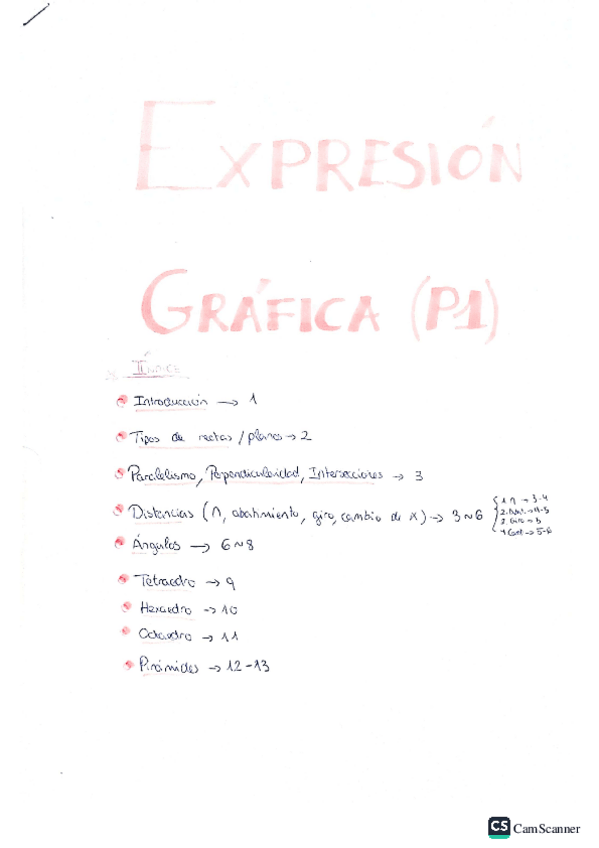 EXPRESIÓN
GRÁFICA (P1)
ÍNDICE
Introducción → 1
Tipos de rectas / planos → 2
Paralelismo, Perpendicularidad, Intersecciones → 3
Distancias (∩, abatimiento, giro, cambio de π) → 3~6
1 ∩ → 3-4
Ángulos → 6~8
Tetraedro → 9
Hexaedro → 10
Octaedro → 11
Pirámides → 12-13
CS CamScanner